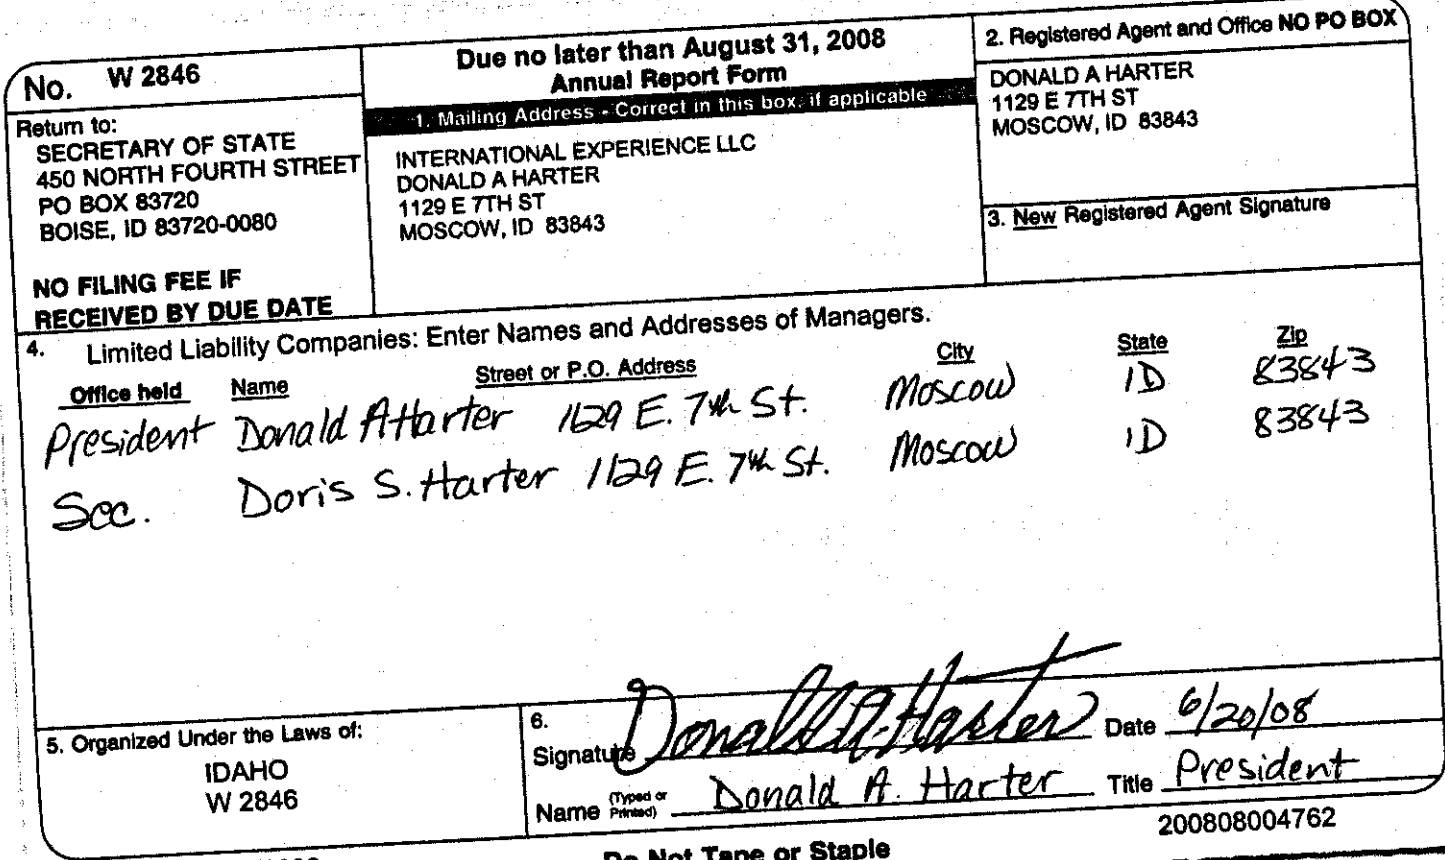 No. W 2846
Return to:
SECRETARY OF STATE
450 NORTH FOURTH STREET
PO BOX 83720
BOISE, ID 83720-0080
NO FILING FEE IF
RECEIVED BY DUE DATE
Due no later than August 31, 2008
Annual Report Form
1. Mailing Address - Correct in this box, if applicable
INTERNATIONAL EXPERIENCE LLC
DONALD A HARTER
1129 E 7TH ST
MOSCOW, ID 83843
2. Registered Agent and Office NO PO BOX
DONALD A HARTER
1129 E 7TH ST
MOSCOW, ID 83843
3. New Registered Agent Signature
4. Limited Liability Companies: Enter Names and Addresses of Managers.
Office held Name Street or P.O. Address City State Zip
President Donald A Harter 1129 E. 7th St. Moscow ID 83843
Sec. Doris S. Harter 1129 E. 7th St. Moscow ID 83843
5. Organized Under the Laws of:
IDAHO
W 2846
6.
Signature Donald A. Harter Date 6/20/08
Name (Typed or Printed) Donald A. Harter Title President
200808004762
Do Not Tape or Staple